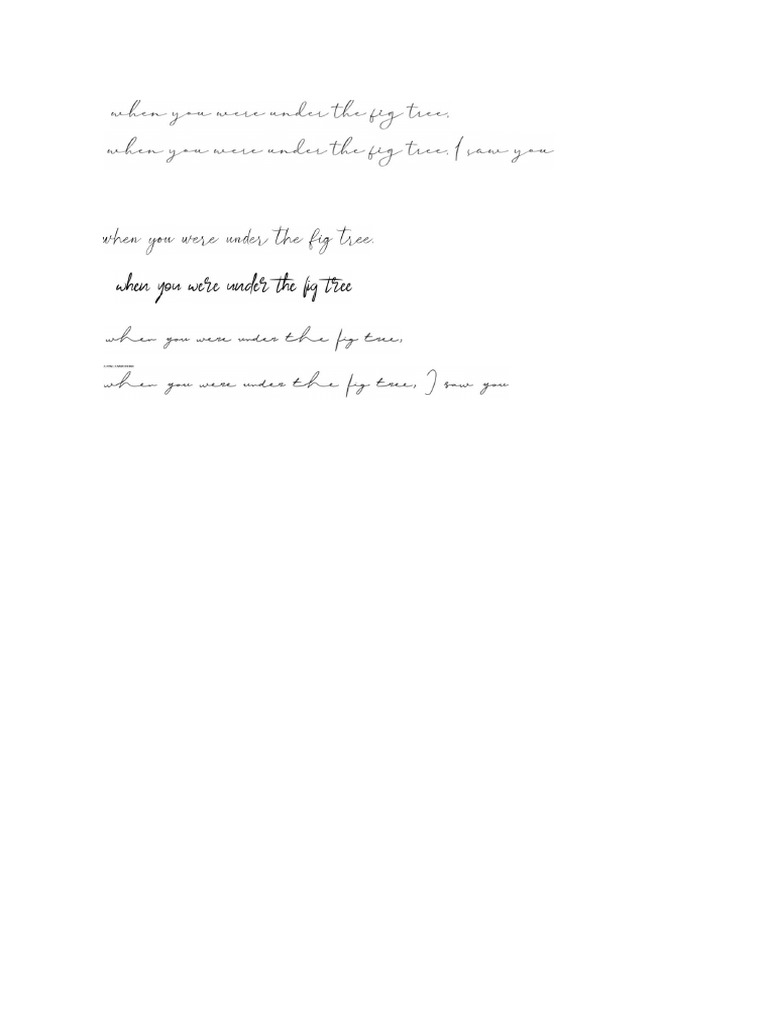 when you were under the fig tree,
when you were under the fig tree, I saw you
when you were under the fig tree.
when you were under the fig tree
when you were under the fig tree,
when you were under the fig tree, I saw you